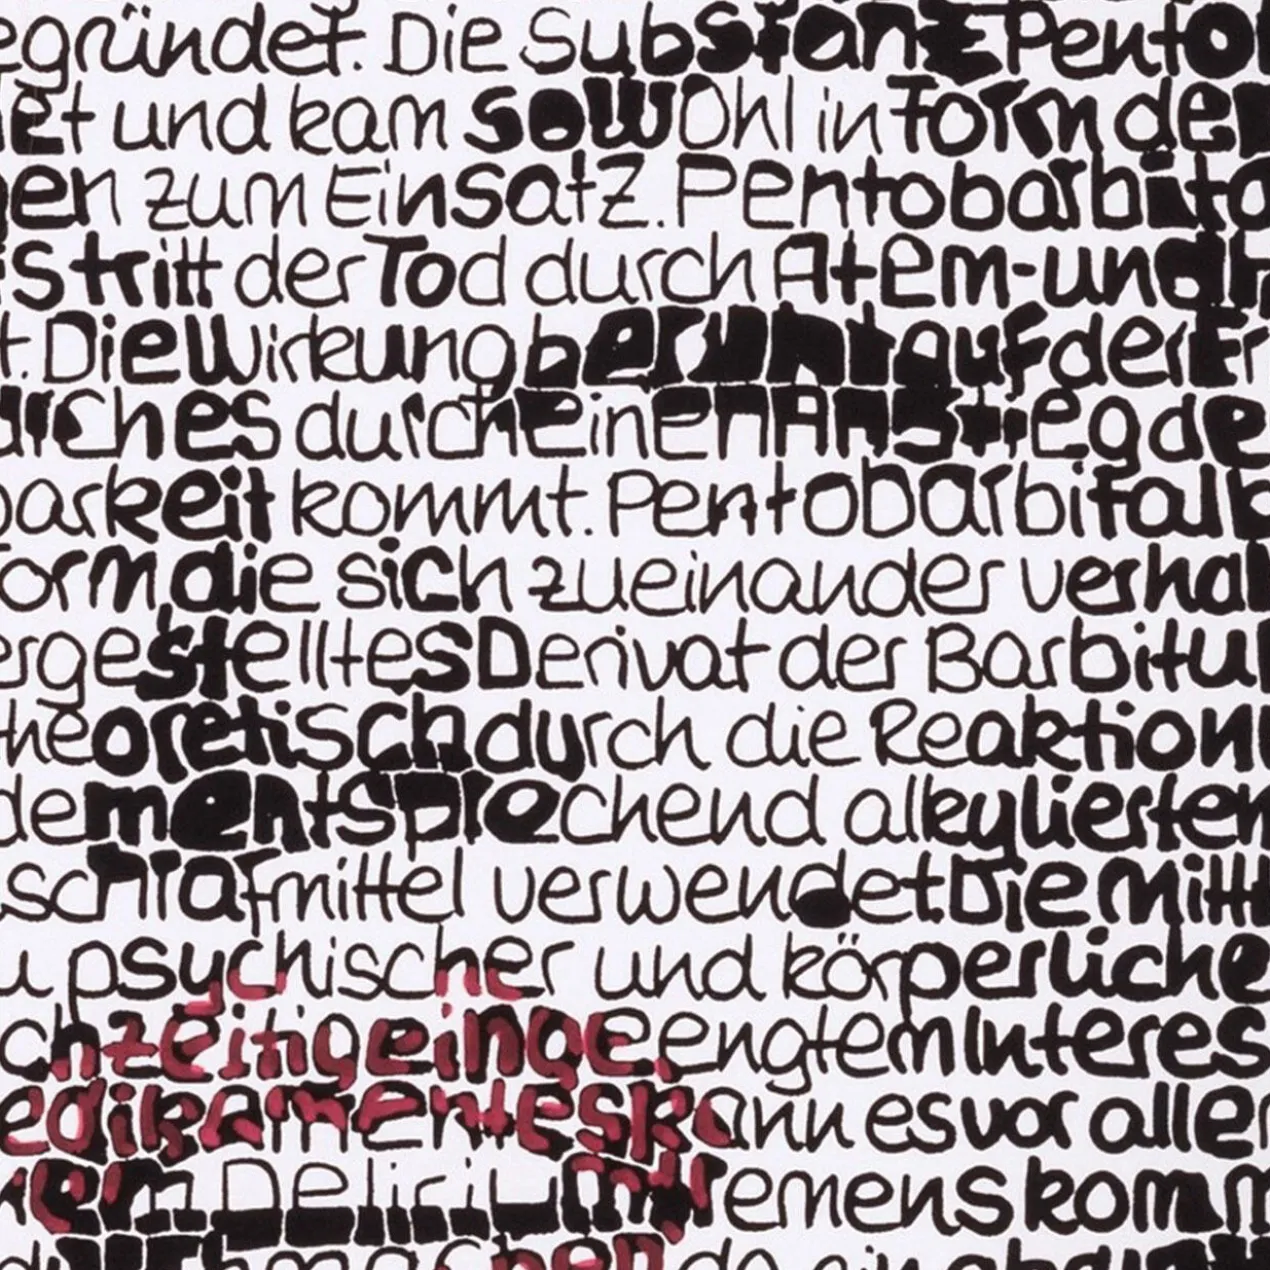 egründet. Die Substanz Pentob
et und kam sowohl in Form der
en zum Einsatz. Pentobarbita
s tritt der Tod durch Atem- und
t. Die Wirkung beruht auf der Er
ches durch einen Anstieg de
barkeit kommt. Pentobarbital
orm, die sich zueinander verhal
ergestelltes Derivat der Barbitu
theoretisch durch die Reaktion
dem entsprechend alkylierten
schlafmittel verwendet. Die mitt
u psychischer und körperliche
chzeitig eingeengtem Interes
edikamentes kann es vor aller
em Delirium tremens komm
da ein